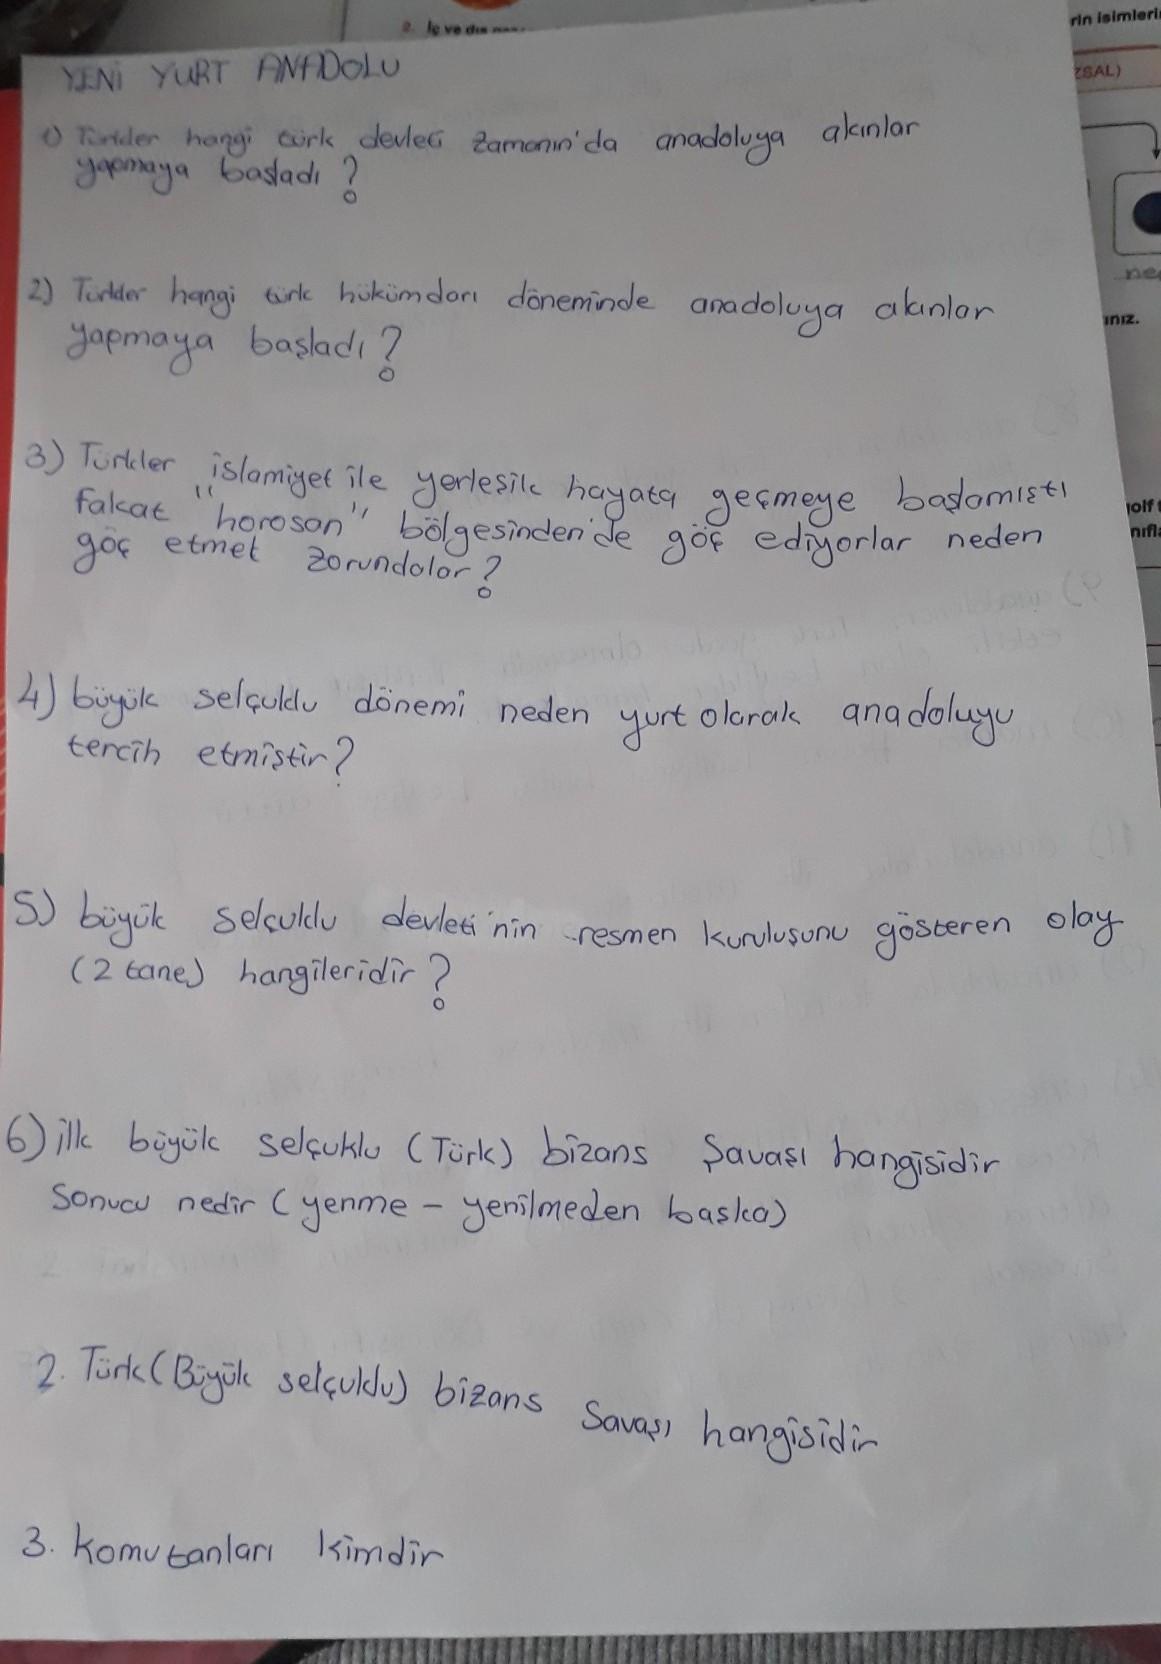 2. İç ve dış
rin isimleri
ZSAL)
YENİ YURT ANADOLU
1) Türkler hangi türk devleti zamanın'da anadoluya akınlar
yapmaya başladı?
ne
2) Türkler hangi türk hükümdarı döneminde anadoluya akınlar
ınız.
yapmaya başladı?
3) Türkler islamiyet ile yerleşik hayata geçmeye başlamıştı
fakat "horosan" bölgesinden'de göç ediyorlar neden
göç etmet zorundalar?
4) büyük selçuklu dönemi neden yurt olarak anadoluyu
tercih etmiştir?
5) büyük selçuklu devleti'nin resmen kuruluşunu gösteren olay
(2 tane) hangileridir?
6) ilk büyük selçuklu (Türk) bizans Savaşı hangisidir
Sonucu nedir (yenme - yenilmeden başka)
2. Türk (Büyük selçuklu) bizans Savaşı hangisidir
3. Komutanları kimdir